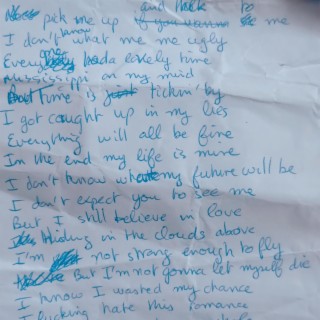 pick me up and fuck to me
I don't know what me me ugly
Everyone had a lovely time
Mississippi on my mind
Time is tickin' by
I got caught up in my lies
Everything will all be fine
In the end my life is mine
I don't know what my future will be
I don't expect you to see me
But I still believe in love
Hiding in the clouds above
I'm not strong enough to fly
But I'm not gonna let myself die
I know I wasted my chance
I fucking hate this romance